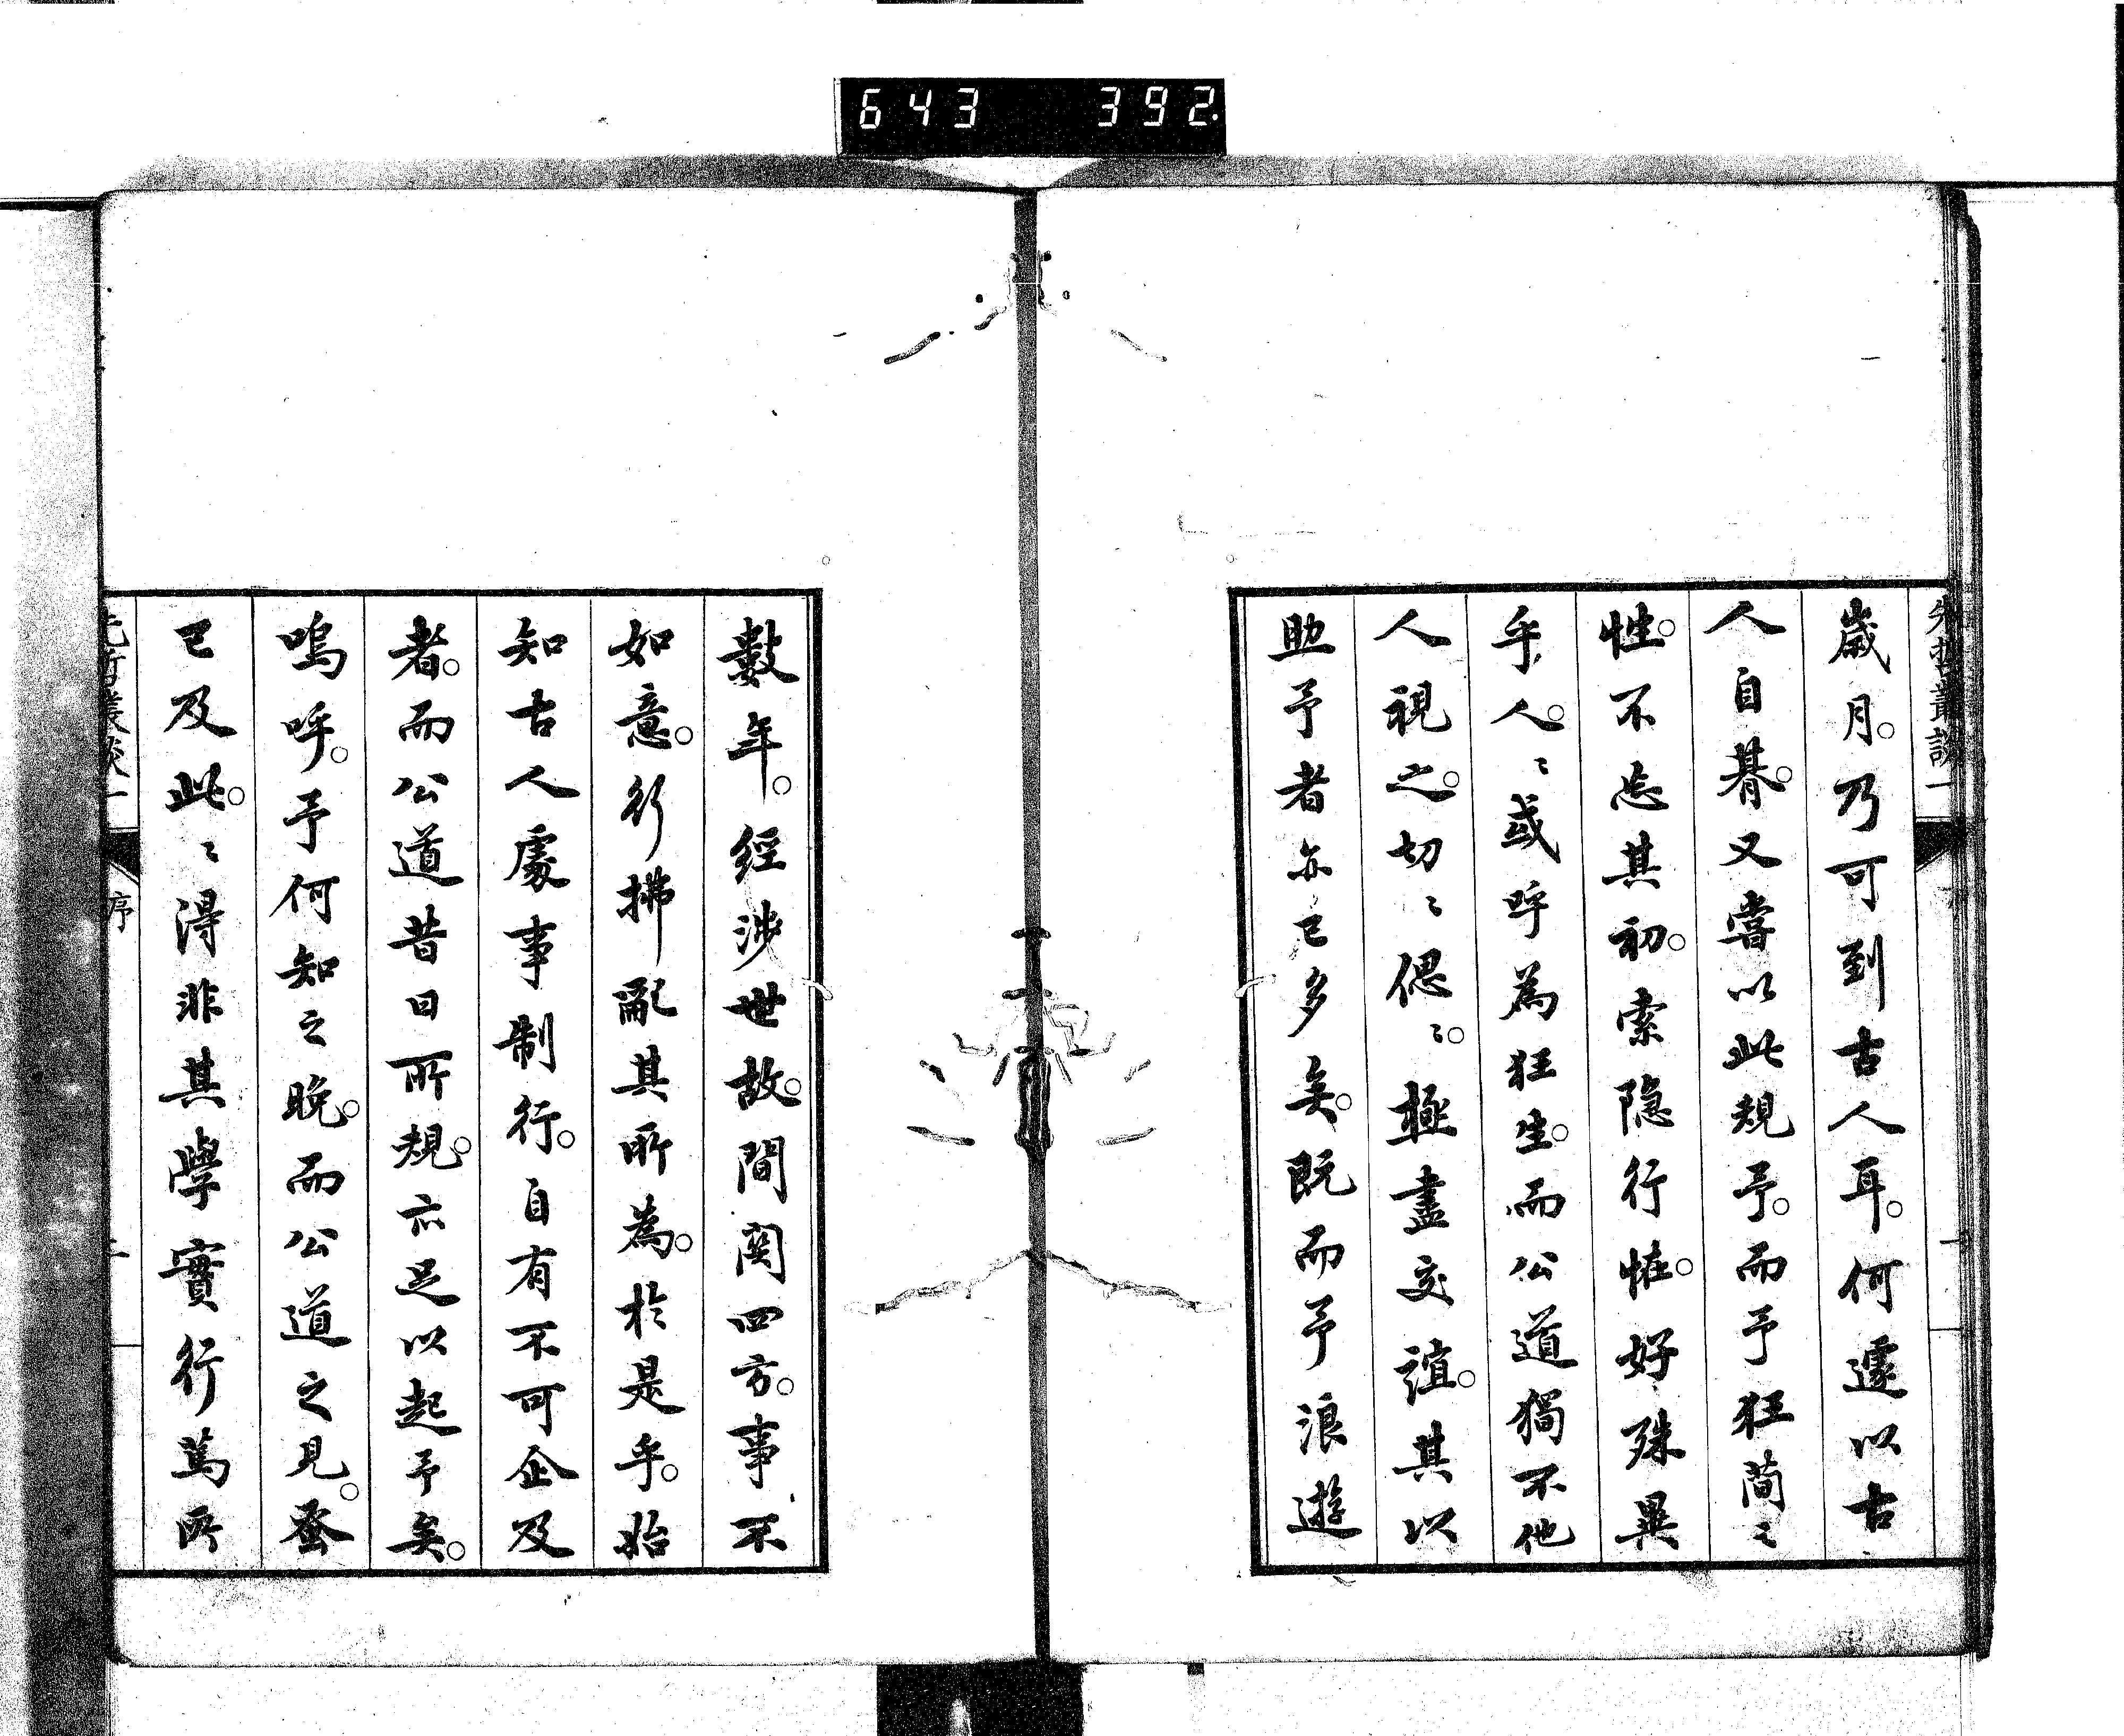 643 392
先哲叢談一
歲月。乃可到古人耳。何遽以古
人自朞。又嘗以此規予。而予狂蕳〻
性。不忘其初。索隱行恠。好殊異
乎人。〻或呼為狂生。而公道獨不他
人視之。切〻偲〻。極盡交誼。其以
助予者亦已多矣。既而予浪遊
數年。經涉世故。間関四方。事不
如意。行拂亂其所為。於是乎。始
知古人處事制行。自有不可企及
者。而公道昔日所規。亦足以起予矣。
嗚呼。予何知之晚。而公道之見。蚤
已及此。〻得非其學實行篤所
先哲叢談一
序
二